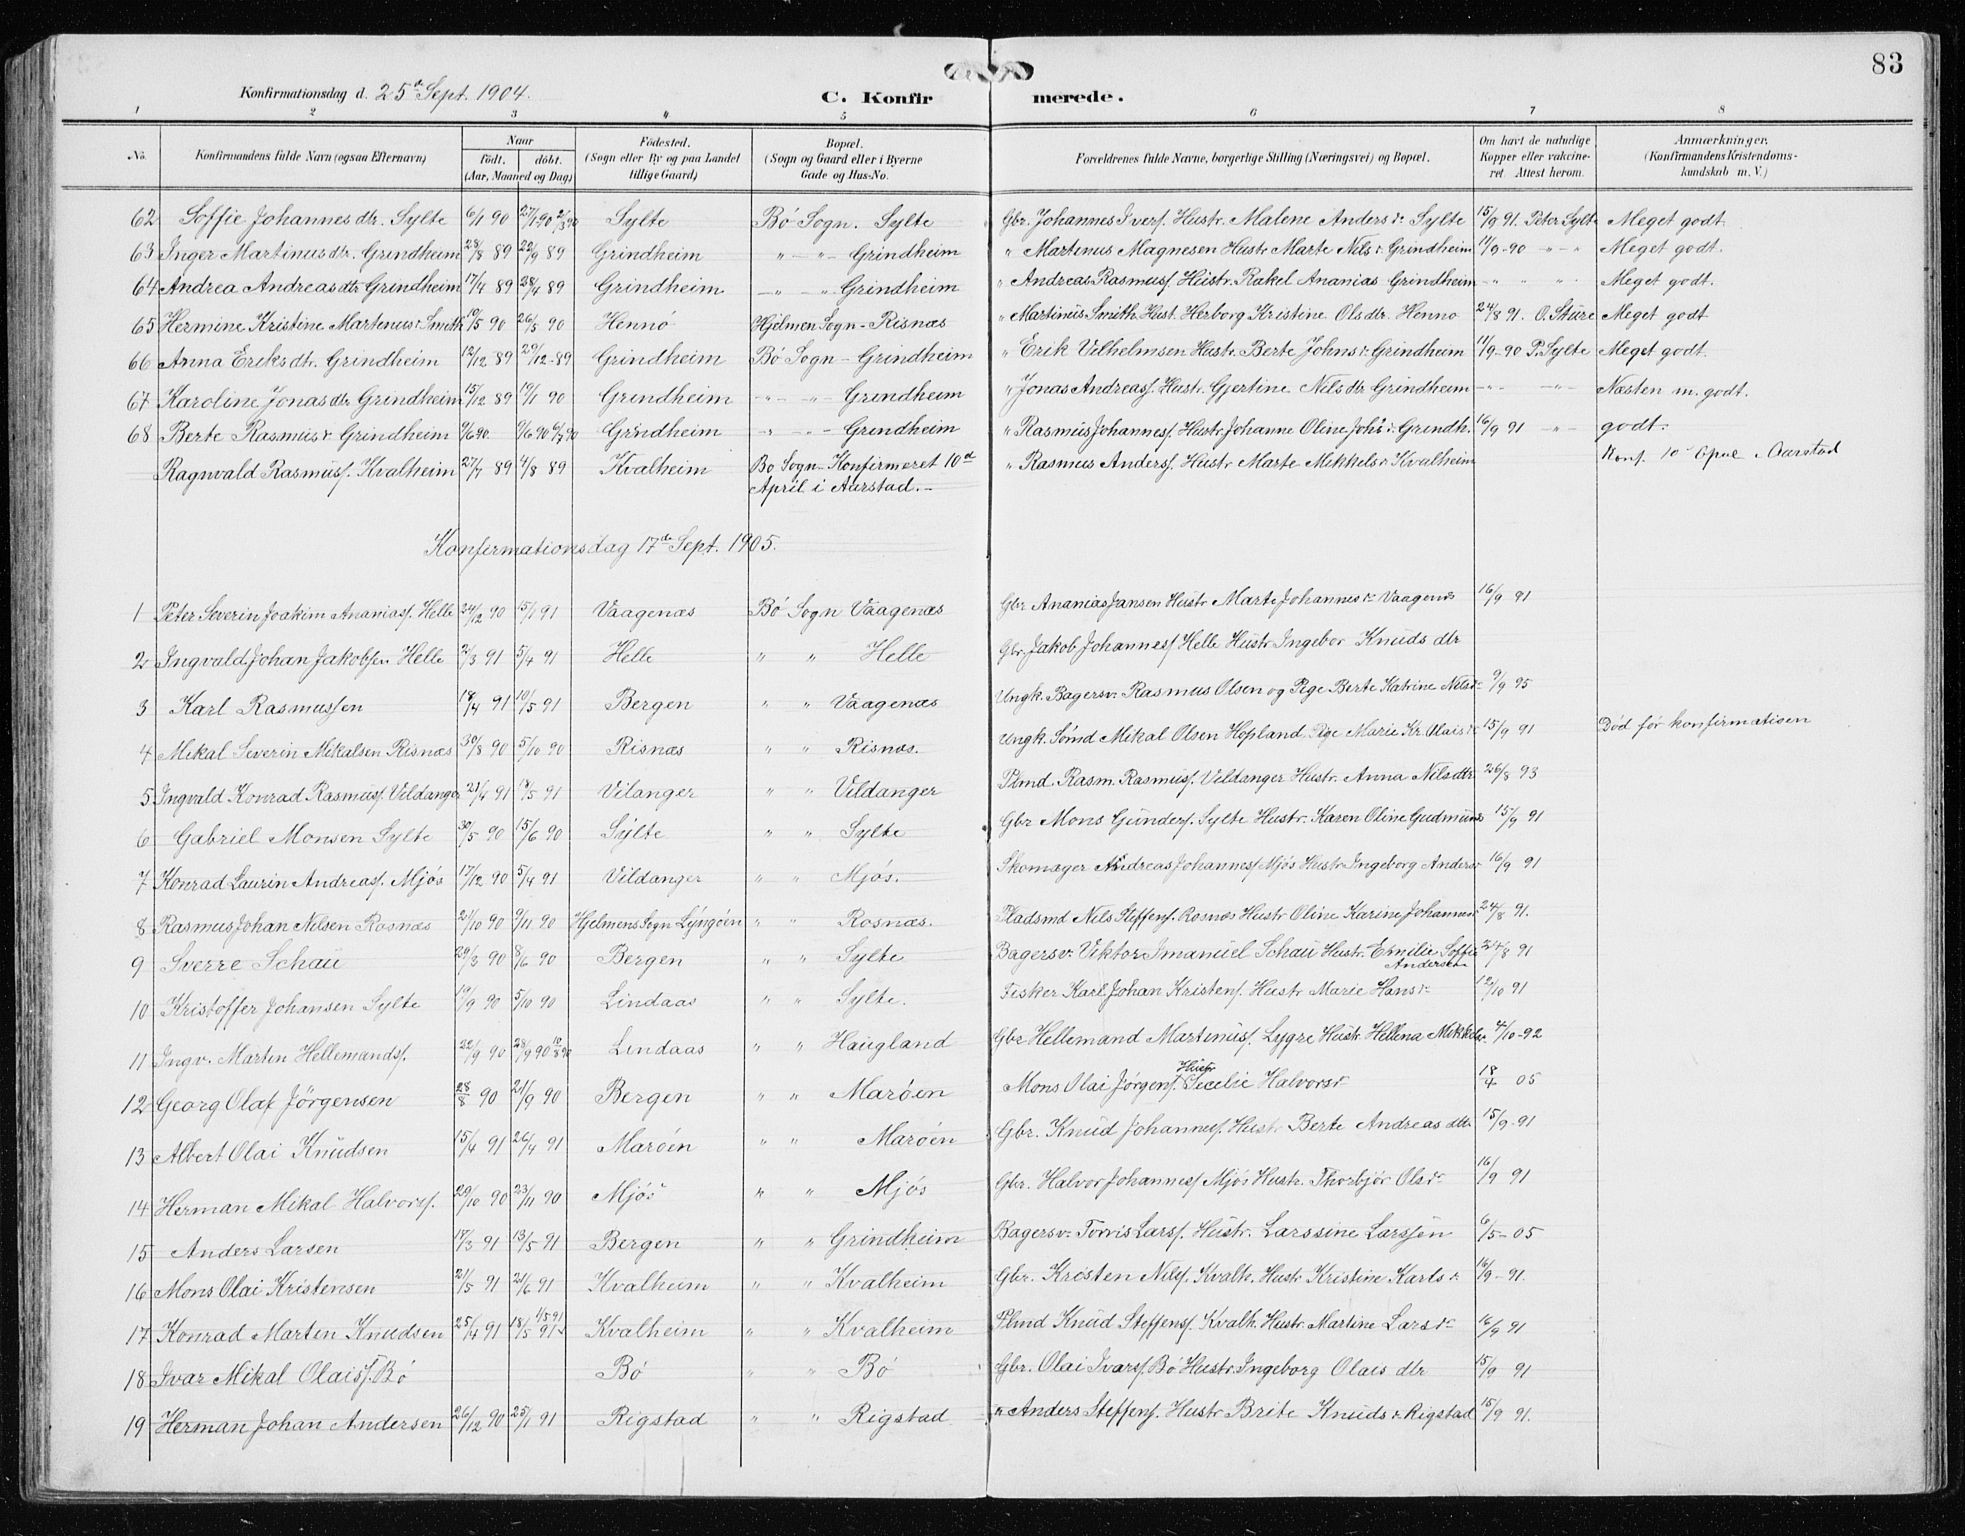 83
Konfirmationsdag d. 25de Sept. 1904.
C. Konfirmerede.
1 2 3 4 5 6 7 8
No. Konfirmandens fulde Navn (ogsaa Efternavn) Naar født. døbt. (Aar, Maaned og Dag) Fødested. (Sogn eller By og paa Landet tillige Gaard) Bopæl. (Sogn og Gaard eller i Byerne Gade og Hus-No. Forældrenes fulde Navne, borgerlige Stilling (Næringsvei) og Bopæl. Om havt de naturlige Kopper eller vakcineret. Attest herom. Anmærkninger. (Konfirmandens Kristendomskundskab m. V.)
62 Soffie Johannesdtr. Sylte 6/1 90 27/1 90 2/3 90 Sylte Bö Sogn. Sylte Gbr. Johannes Ivers. Hustr. Malene Andersdr Sylte 15/9 91. Peter Sylte Meget godt.
63 Inger Martinusdtr. Grindheim 28/8 89 22/9 89 Grindheim " - " - Grindheim " Martinus Magnesen Hustr Marte Nilsdr Grindheim 11/9-90 " - " Meget godt.
64 Andrea Andreasdtr Grindheim 17/4 89 28/4 89 Grindheim - " - " Grindheim " Andreas Rasmuss. Hustr. Rakel Ananias Grindheim - " " " Meget godt.
65 Hermine Kristine Martenusdr Smith 10/5 90 26/5 90 Hennö Hjelmen Sogn - Risnæs " Martinus Smith. Hust. Herborg Kristine Olsdtr. Henno 24/8 91. O. Sture Meget godt
66 Anna Eriksdtr. Grindheim 12/12 89 29/12-89 Grindheim Bö Sogn - Grindheim " Erik Vilhelmsen Hustr. Berte Johnsdr Grindheim 11/9-90 P. Sylte Meget godt.
67 Karoline Jonasdtr Grindheim 15/12 89 19/1 90 Grindheim - " - " - Grendheim " Jonas Andreass. Hustr. Gjertine Nilsdtr Grindheim - " - - " - Næsten m. godt.
68 Berte Rasmusdr Grindheim 9/6 90 Grindheim - " - " - Grendheim " Rasmus Johanness. Hustr. Johanne Oline Johsdr Grindh. 16/9 91 - " - godt.
Ragnvald Rasmuss. Kvalheim 27/7 89 4/8 89 Kvalheim Bo Sogn - Konfirmeret 10de " Rasmus Anderss. Hustr Marte Mikkelsdr Kvalheim Konf. 10 April i Aarstad
April i Aarstad. -
Konfirmationsdag 17de Sept. 1905.
1 Peter Severin Joakim Ananiass. Helle 24/12 90 15/1 91 Vaagenæs Bö Sogn Vaagenæs Gbr Ananias Jansen Hustr Marte Johannesdr Vaagenæs 16/9 91
2 Ingvald Johan Jakobsen Helle 2/3 91 5/4 91 Helle " " Helle Gbr. Jakob Johanness Helle Hustr Ingebor Knudsdtr
3 Karl Rasmussen 18/4 91 10/5 91 Bergen " " Vaagenæs Ungk. Bagersv. Rasmus Olsen og Pige Berte Katrine Nilsdr 9/9 95
4 Mikal Severin Mikalsen Risnæs 30/8 90 5/10 90 Risnæs " " Risnæs. Ungk. Sömd Mikal Olsen Hopland. Pige Marie Kr. Olaisdr 15/9 91 Död för konfirmatisen
5 Ingvald Konrad Rasmuss. Vildanger 21/4 91 18/5 91 Vilanger " " Vildanger Plmd. Rasm. Rasmuss. Vildanger Hustr. Anna Nilsdtr. 26/8 93
6 Gabriel Monsen Sylte 30/5 90 15/6 90 Sylte " " Sylte Gbr Mons Gunders. Sylte Hustr. Karen Oline Gudmunds 15/9 91
7 Konrad Laurin Andreass. Mjös 17/12 90 5/4 91 Vildanger " " Mjös. Skomager Andreas Johanness Mjös Hustr Ingeborg Andersdr 16/9 91
8 Rasmus Johan Nilsen Rosnæs 21/10 90 9/11 90 Hjelmens Sogn Lyngöen " " Rosnæs. Pladsmd Nils Steffens. Rosnæs Hustr Oline Karine Johannesdr 24/8 91.
9 Sverre Schau 29/3 90 8/6 90 Bergen " " Sylte Bagersv. Viktor Imanuel Schau Hustr. Emilie Soffie Andersen 24/8 91
10 Kristoffer Johansen Sylte 19/9 90 5/10 90 Lindaas " " Sylte. Fisker Karl Johan Kristens. Hustr Marie Hansdr 12/10 91
11 Ingv. Marten Hellemands. 22/9 90 28/9 90 Lendaas " " Haugland Gbr Hellemand Martinuss. Lygre Hustr Hellena Mikkelsdr 4/10-92
12 Georg Olaf Jörgensen 28/8 90 21/9 90 Bergen " " Maröen Mons Olai Jørgens. Hustr Secelie Halvorsdr 18/4 05
13 Albert Olai Knudsen 15/4 91 26/4 91 Maröen " " Maröen Gbr. Knud Johanness. Hustr Berte Andreasdtr 15/9-91
14 Herman Mikal Halvors. 29/10 90 23/11 90 Mjös " " Mjös Gbr. Halvor Johanness Mjös Hustr. Thorbjör Olsdr 16/9 91
15 Anders Larsen 17/3 91 13/5 91 Bergen " " Grindheim Bagersv. Torris Lars. Hustr. Larssine Larssen 6/5-05
16 Mons Olai Kristensen 21/5 91 21/6 91 Kvalheim " " Kvalheim Gbr. Kristen Nils. Kvalh. Hustr Kristine Karlsdr 16/9-91.
17 Konrad Marten Knudsen 25/4 91 18/5 91 1/5 91 Kvalheim " " Kvalheim Plmd Knud Steffens. Kvalh. Hustr. Martine Larsdr 16/9 91
18 Ivar Mikal Olais. Bö Bö " " Bö Gbr. Olai Ivars. Bö Hustr. Ingeborg Olaisdtr 15/9 91
19 Herman Johan Andersen 26/12 90 25/1 91 Rigstad " " Rigstad " Anders Steffens. Hustr Brite Knudsdr Rigstad 15/9 91.